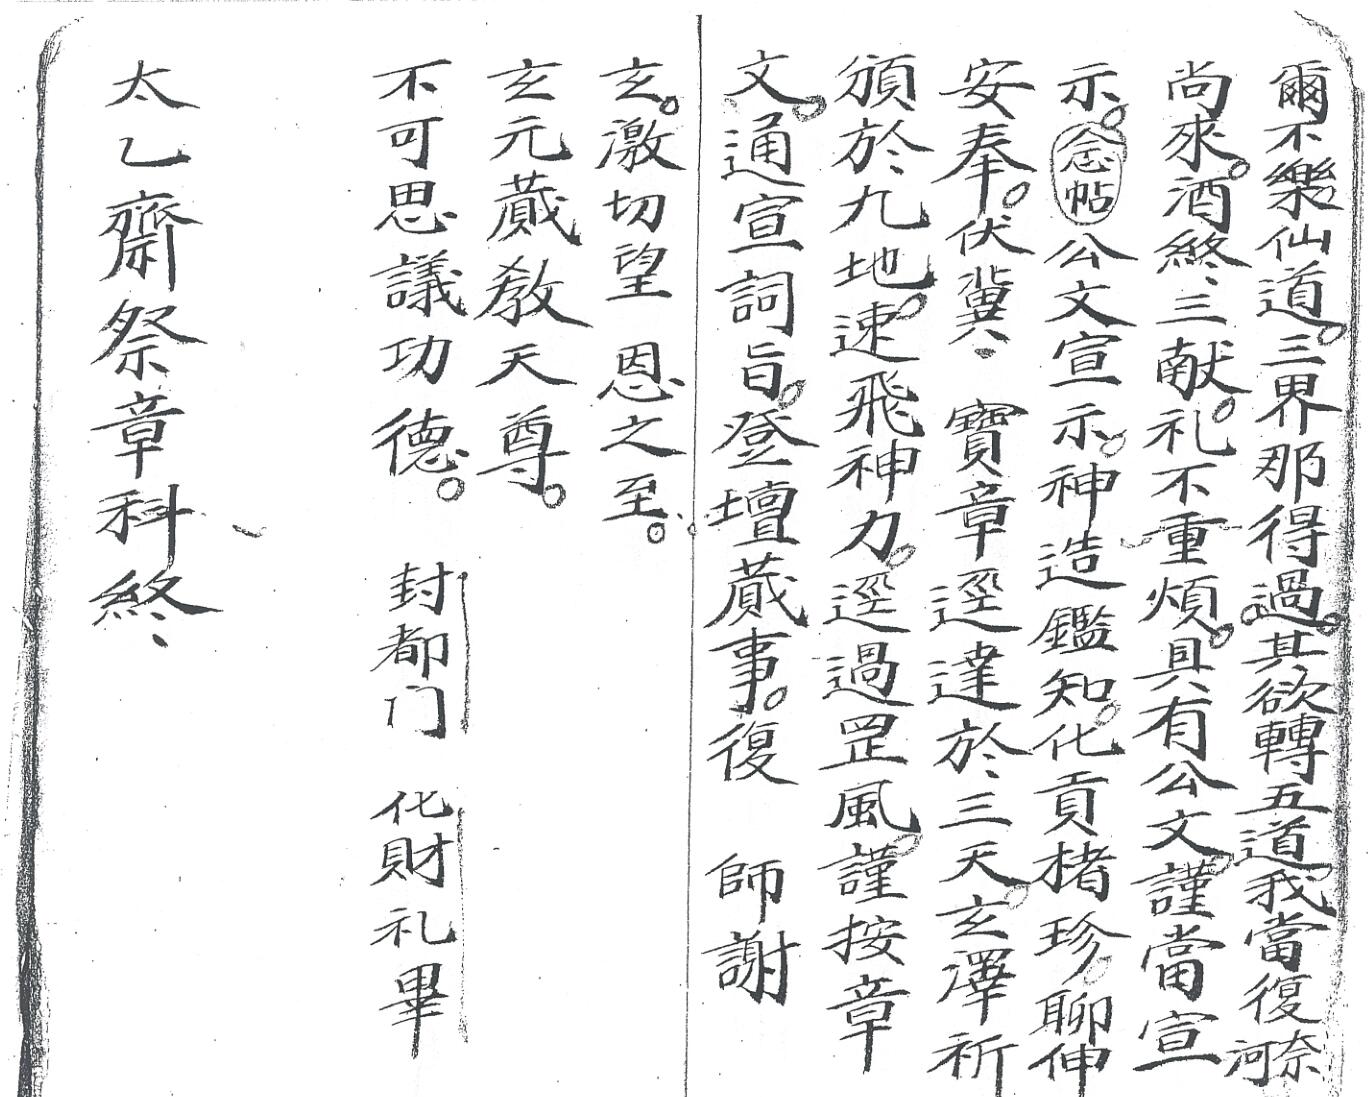 爾不樂仙道。三界那得過。其欲轉五道我當復奈河
尚來。酒終三献。礼不重煩。具有公文謹當宣
示。念帖公文宣示。神造鑑知。化貢楮珍。聊伸
安奉。伏冀 寶章逕達於三天。玄澤祈
頒於九地。速飛神力。逕過罡風。謹按章
文。通宣詞旨。登壇蕆事。復 師謝
玄。激切望 恩之至。
玄元蕆教天尊。
不可思議功德。 封都门 化財礼畢
太乙齋祭章科終